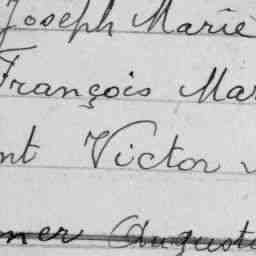 Joseph Marie
François Mar
nt Victor
ner Auguste